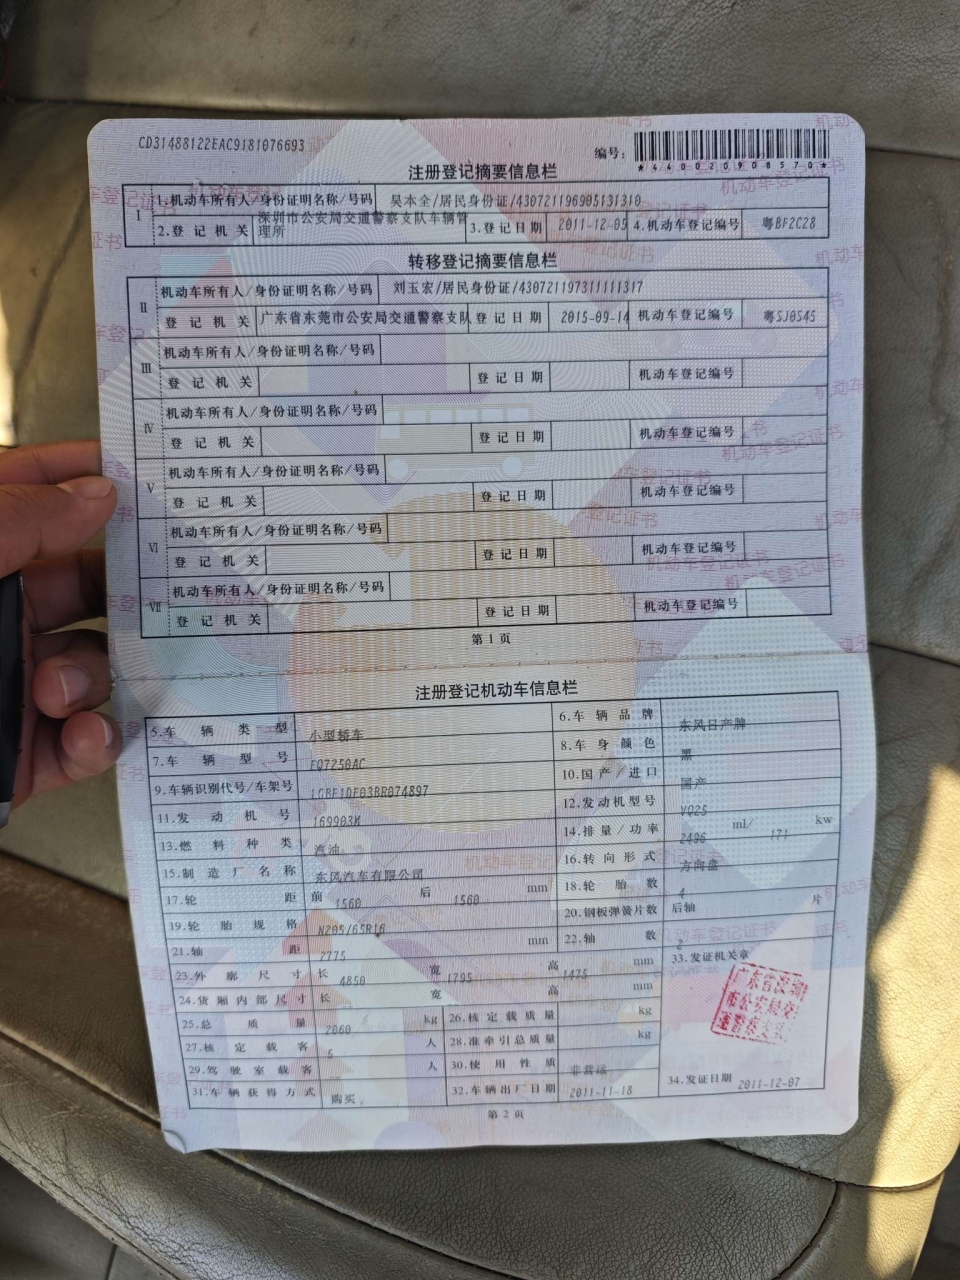 CD31488122EAC9181076693
编号:
*440020908570*
注册登记摘要信息栏
Ⅰ 1.机动车所有人/身份证明名称/号码 吴本全/居民身份证/430721196905131310
2.登记机关 深圳市公安局交通警察支队车辆管理所 3.登记日期 2011-12-05 4.机动车登记编号 粤BF2C28
转移登记摘要信息栏
Ⅱ 机动车所有人/身份证明名称/号码 刘玉宏/居民身份证/430721197311111317
登记机关 广东省东莞市公安局交通警察支队 登记日期 2015-09-14 机动车登记编号 粤SJ0S45
Ⅲ 机动车所有人/身份证明名称/号码
登记机关 登记日期 机动车登记编号
Ⅳ 机动车所有人/身份证明名称/号码
登记机关 登记日期 机动车登记编号
Ⅴ 机动车所有人/身份证明名称/号码
登记机关 登记日期 机动车登记编号
Ⅵ 机动车所有人/身份证明名称/号码
登记机关 登记日期 机动车登记编号
Ⅶ 机动车所有人/身份证明名称/号码
登记机关 登记日期 机动车登记编号
第1页
注册登记机动车信息栏
5.车辆类型 小型轿车 6.车辆品牌 东风日产牌
7.车辆型号 EQ7250AC 8.车身颜色 黑
9.车辆识别代号/车架号 LGBF1DE03BR074897 10.国产/进口 国产
11.发动机号 169903M 12.发动机型号 VQ25
13.燃料种类 汽油 14.排量/功率 2496 ml/ 171 kw
15.制造厂名称 东风汽车有限公司 16.转向形式 方向盘
17.轮距 前 1560 后 1560 mm 18.轮胎数 4
19.轮胎规格 N205/65R16 20.钢板弹簧片数 后轴 片
21.轴距 2775 mm 22.轴数 2
23.外廓尺寸 长 4850 宽 1795 高 1475 mm 33.发证机关章
24.货厢内部尺寸 长 宽 高 mm
25.总质量 2060 kg 26.核定载质量 kg
27.核定载客 5 人 28.准牵引总质量 kg
29.驾驶室载客 人 30.使用性质 非营运
31.车辆获得方式 购买 32.车辆出厂日期 2011-11-18 34.发证日期 2011-12-07
第2页